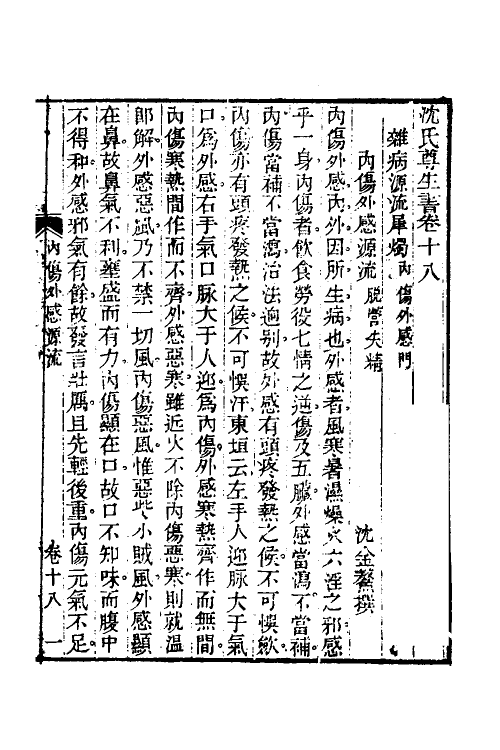 沈氏尊生書卷十八
雜病源流犀燭內傷外感門
沈金鰲撰
內傷外感源流脫營失精
內傷外感內外因所生病也外感者風寒暑濕燥火六淫之邪感
乎一身內傷者飲食勞役七情之逆傷及五臟外感當瀉不當補
內傷當補不當瀉治法逈别故外感有頭疼發熱之候不可悞歛
內傷亦有頭疼發熱之候不可悞汗東垣云左手人迎脉大于氣
口爲外感右手氣口脉大于人迎爲內傷外感寒熱齊作而無間
內傷寒熱間作而不齊外感惡寒雖近火不除內傷惡寒則就温
郎解外感惡風乃不禁一切風內傷惡風惟惡些小賊風外感顯
在鼻故鼻氣不利壅盛而有力內傷顯在口故口不知味而腹中
不得和外感邪氣有餘故發言壯厲且先輕後重內傷元氣不足
內傷外感源流
卷十八
一